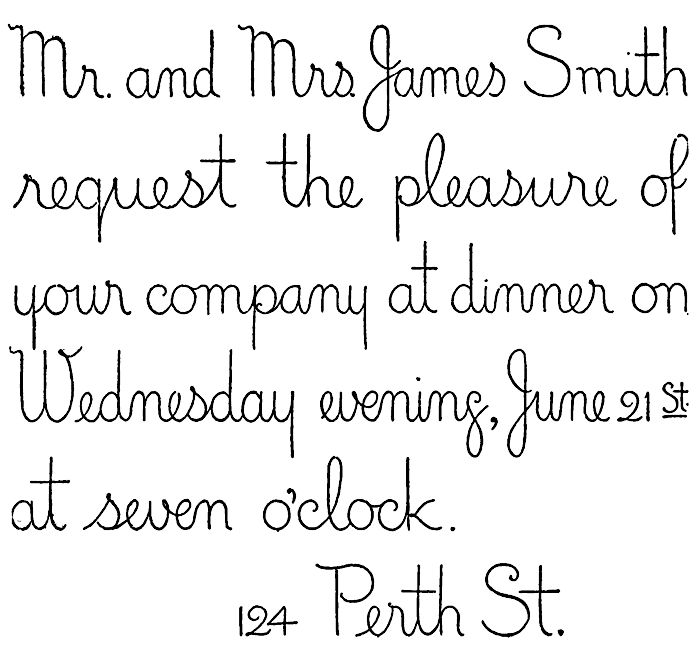 Mr. and Mrs. James Smith
request the pleasure of
your company at dinner on
Wednesday evening, June 21st
at seven o'clock.
124 Perth St.